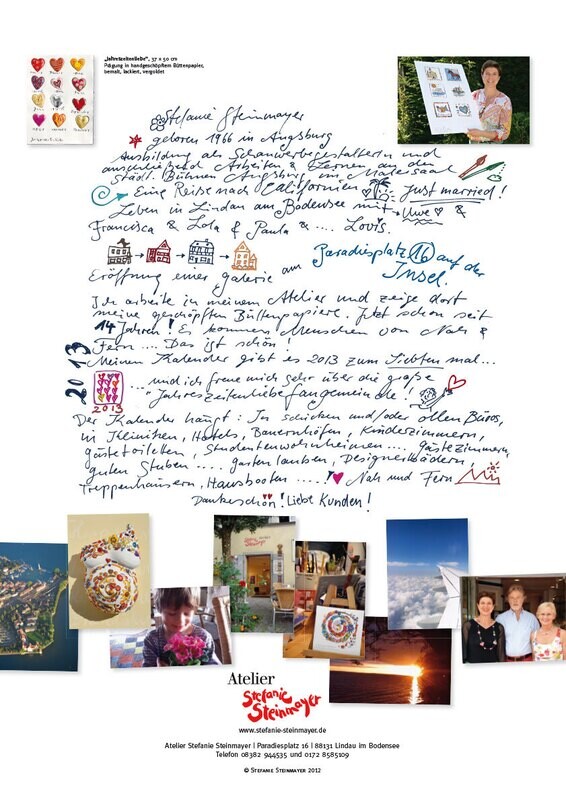 „Jahreszeitenliebe“, 37 x 50 cm
Prägung in handgeschöpftem Büttenpapier,
bemalt, lackiert, vergoldet
Stefanie Steinmayer
geboren 1966 in Augsburg
Ausbildung als Schauwerbegestalterin und
anschließend Arbeiten & Lernen an den
Städt. Bühnen Augsburg im Malersaal
Eine Reise nach Californien just married!
Leben in Lindau am Bodensee mit Uwe &
Francisca & Lola & Paula & .... Lovis.
Eröffnung einer Galerie am Paradiesplatz 16 auf der
Insel.
Ich arbeite in meinem Atelier und zeige dort
meine geschöpften Büttenpapiere. Jetzt schon seit
14 Jahren! Es kommen Menschen von Nah &
Fern ... Das ist schön!
2013
Meinen Kalender gibt es 2013 zum siebten mal...
... und ich freue mich sehr über die große
"Jahreszeitenliebefangemeinde"!!
2013
Der Kalender hängt: In schicken und/oder ollen Büros,
in Kliniken, Hotels, Bauernhöfen, Kinderzimmern,
Gästetoiletten, Studentenwohnheimen .... Gästezimmern,
guten Stuben .... Gartenlauben, Designerbädern,
Treppenhäusern, Hausbooten ....! Nah und Fern
Dankeschön! Liebe Kunden!
Stefanie Steinmayer
Atelier
Stefanie
Steinmayer
www.stefanie-steinmayer.de
Atelier Stefanie Steinmayer | Paradiesplatz 16 | 88131 Lindau im Bodensee
Telefon 08382 944535 und 0172 8585109
© Stefanie Steinmayer 2012